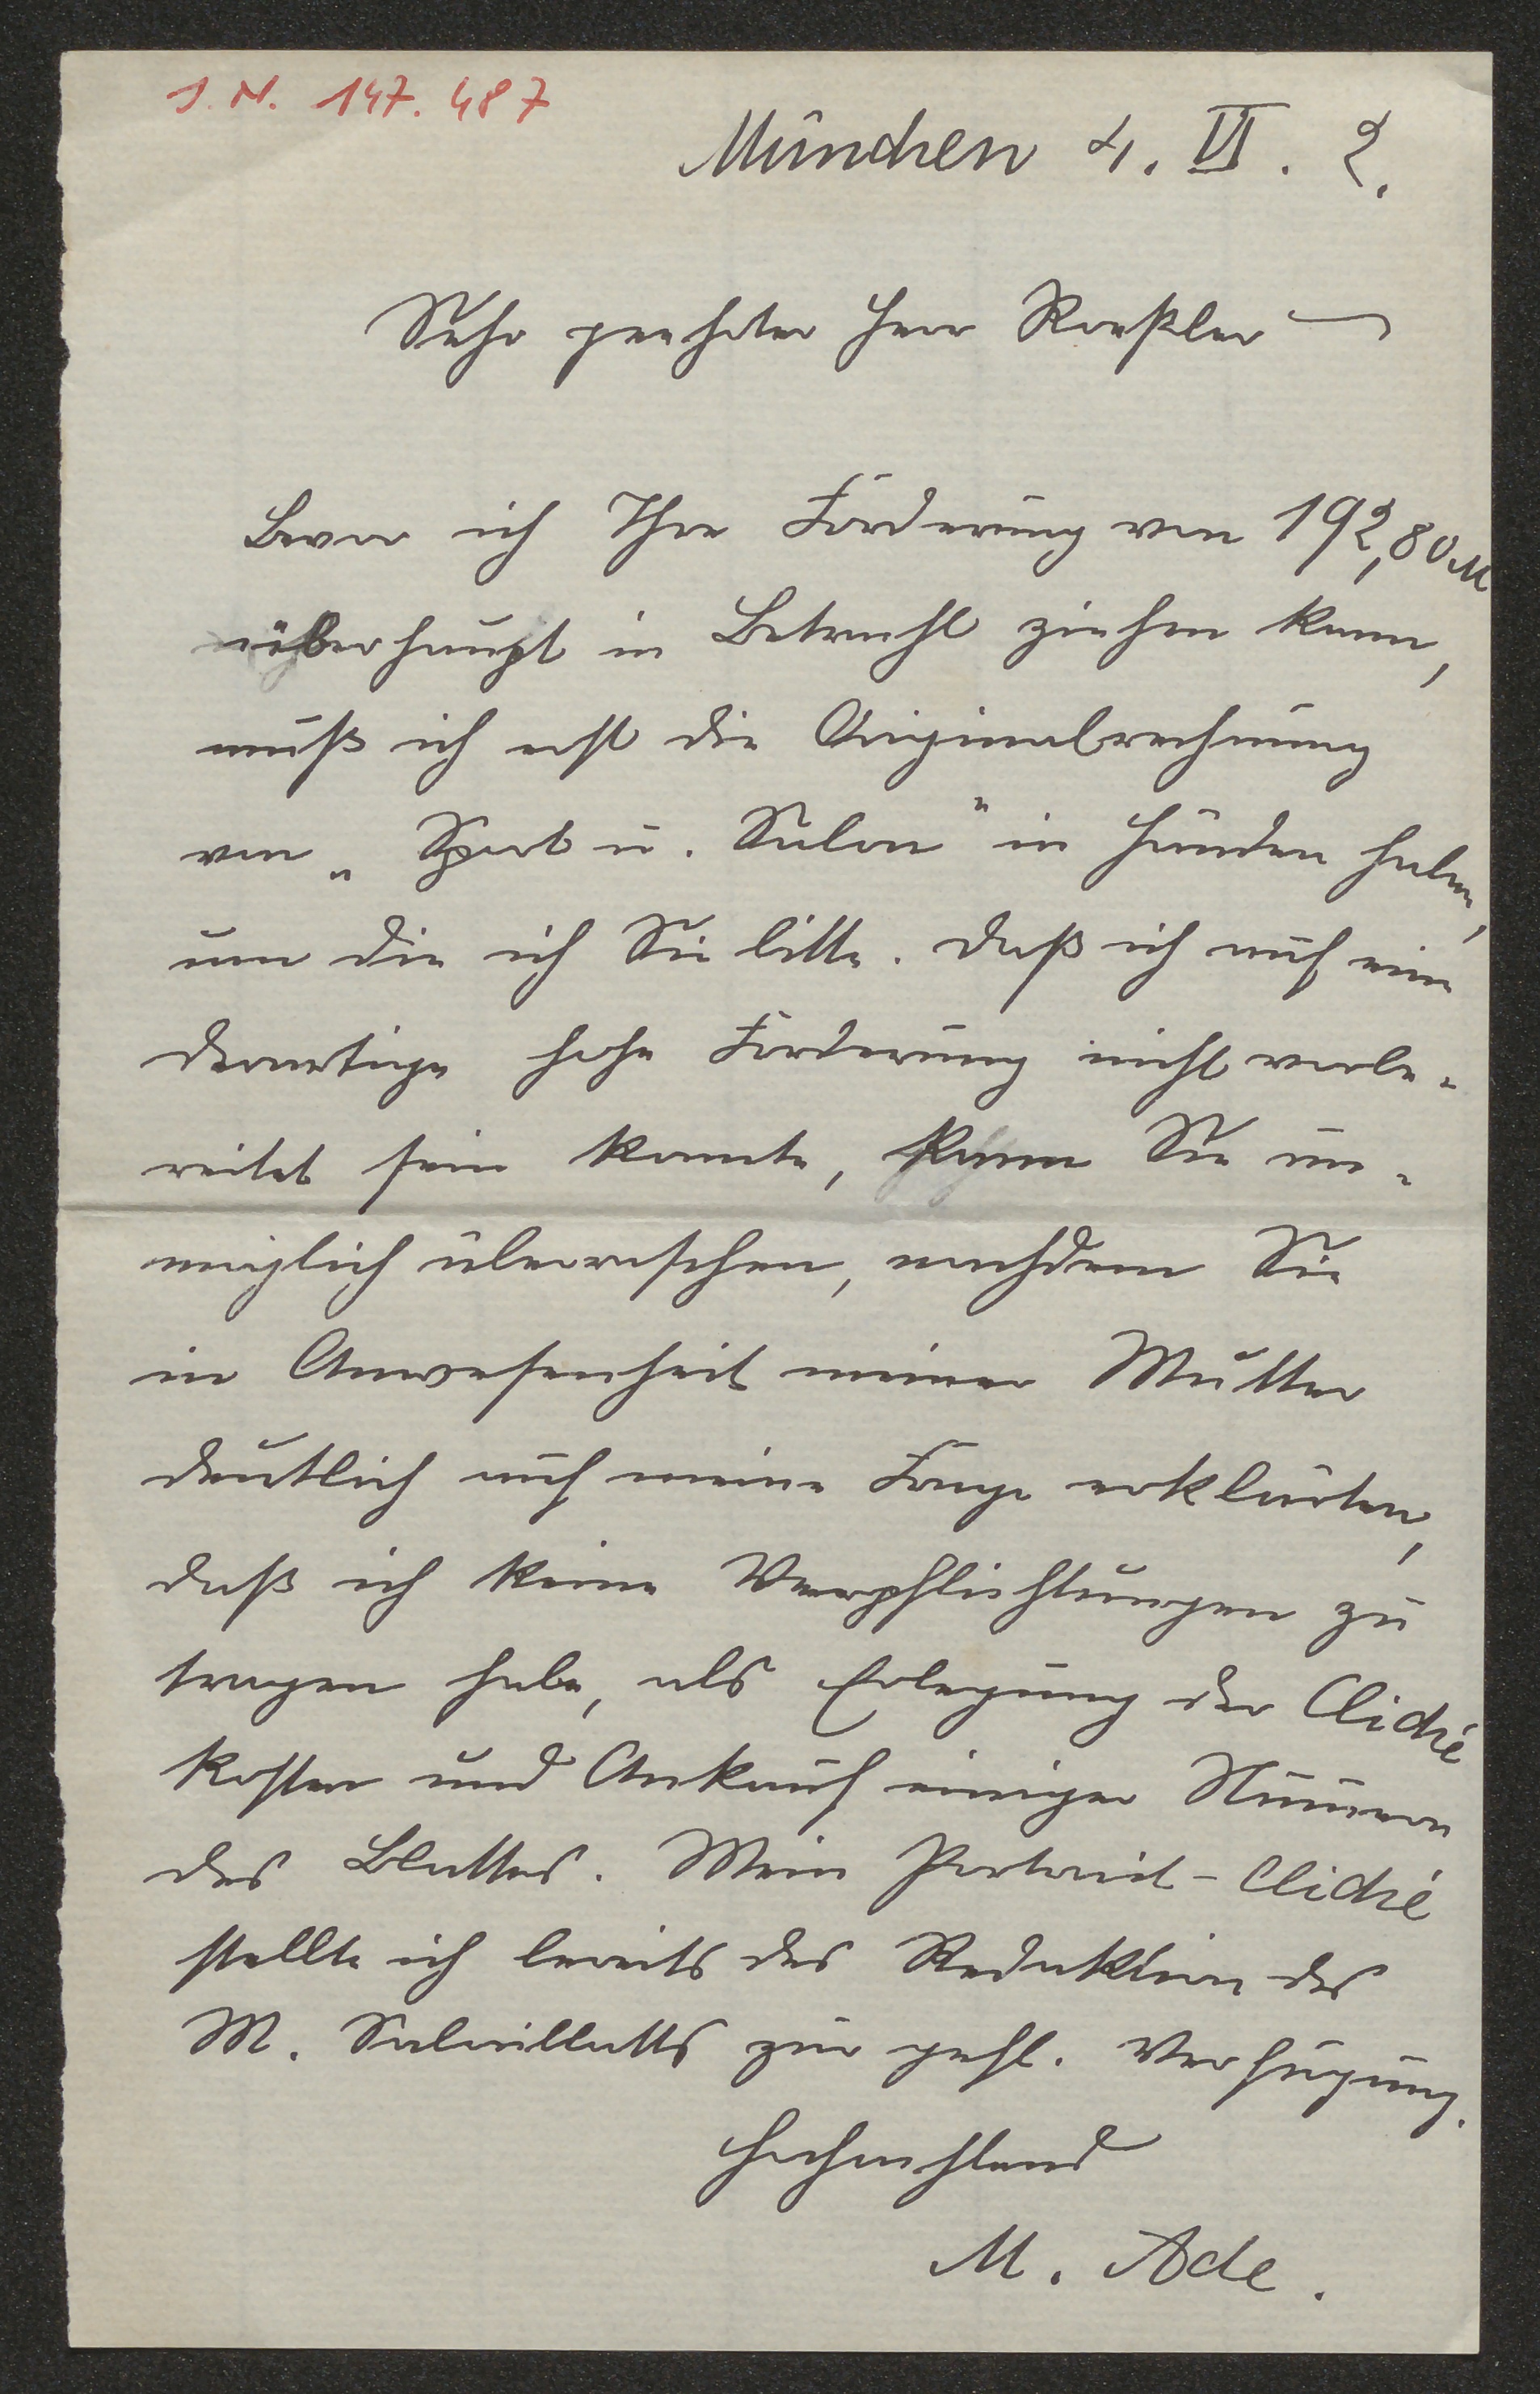 J. N. 147.487
München 4. VI. 2.
Sehr geehrter Herr Roeßler —
Bevor ich Ihre Forderung von 192,80 M
überhaupt in Betracht ziehen kann,
muß ich erst die Originalrechnung
von „Sport u. Salon" in Händen haben,
um die ich Sie bitte. Daß ich auf eine
derartige hohe Forderung nicht vorbe-
reitet sein konnte, kann Sie un-
möglich überraschen, nachdem Sie
in Anwesenheit meiner Mutter
deutlich auf meine Frage erklärten,
daß ich keine Verpflichtungen zu
tragen habe, als Erlegung der Cliché
kosten und Ankauf einiger Nummern
des Blattes. Mein Portrait-Cliché
stellte ich bereits der Redaktion des
M. Salonblatts zur gefl. Verfügung.
Hochachtend
M. Ade.